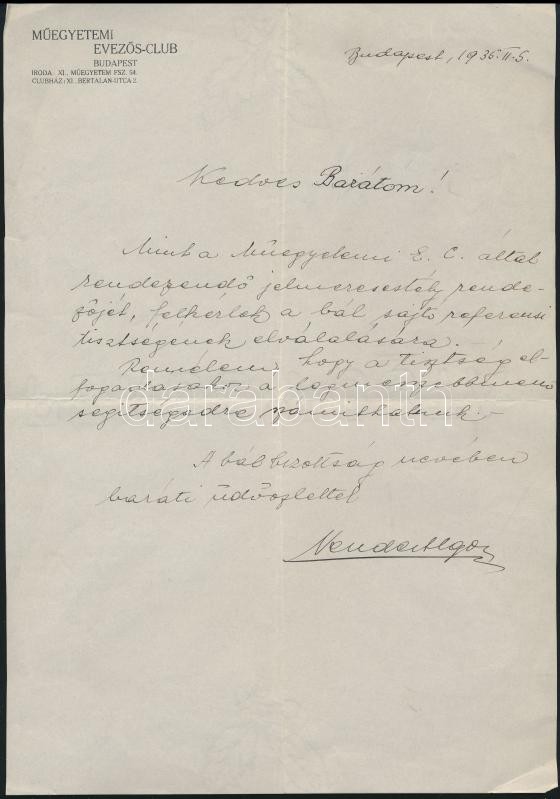 MŰEGYETEMI
EVEZŐS-CLUB
BUDAPEST
IRODA: XI., MŰEGYETEM FSZ. 54.
CLUBHÁZ: XI., BERTALAN-UTCA 2.
Budapest, 1936. II. 5.
Kedves Barátom!
Mint a Műegyetemi E. C. által
rendezendő jelmezestély rende-
zőjét, felkérlek a bál sajtó referensi
tisztségének elvállalására. -
Remélem, hogy a tisztség el-
fogadásakor a
segitségedre számithatunk. -
A bál bizottság nevében
baráti üdvözlettel
darabanth